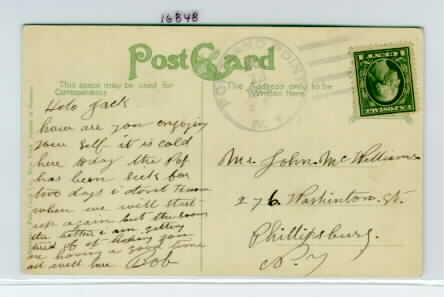 16848
Post Card
This space may be used for
Correspondence
The Address only to be
Written Here.
Holo Jack
how are you engoying
your self it is cold
here to day the
has been Sick for
two days i dont know
when we will start
up again but the soon
the better i am getting
tired of
are having a good time
all well here Bob
Mr John. McWilliams
276 Washinton. St.
Phillipsburg.
N. Y